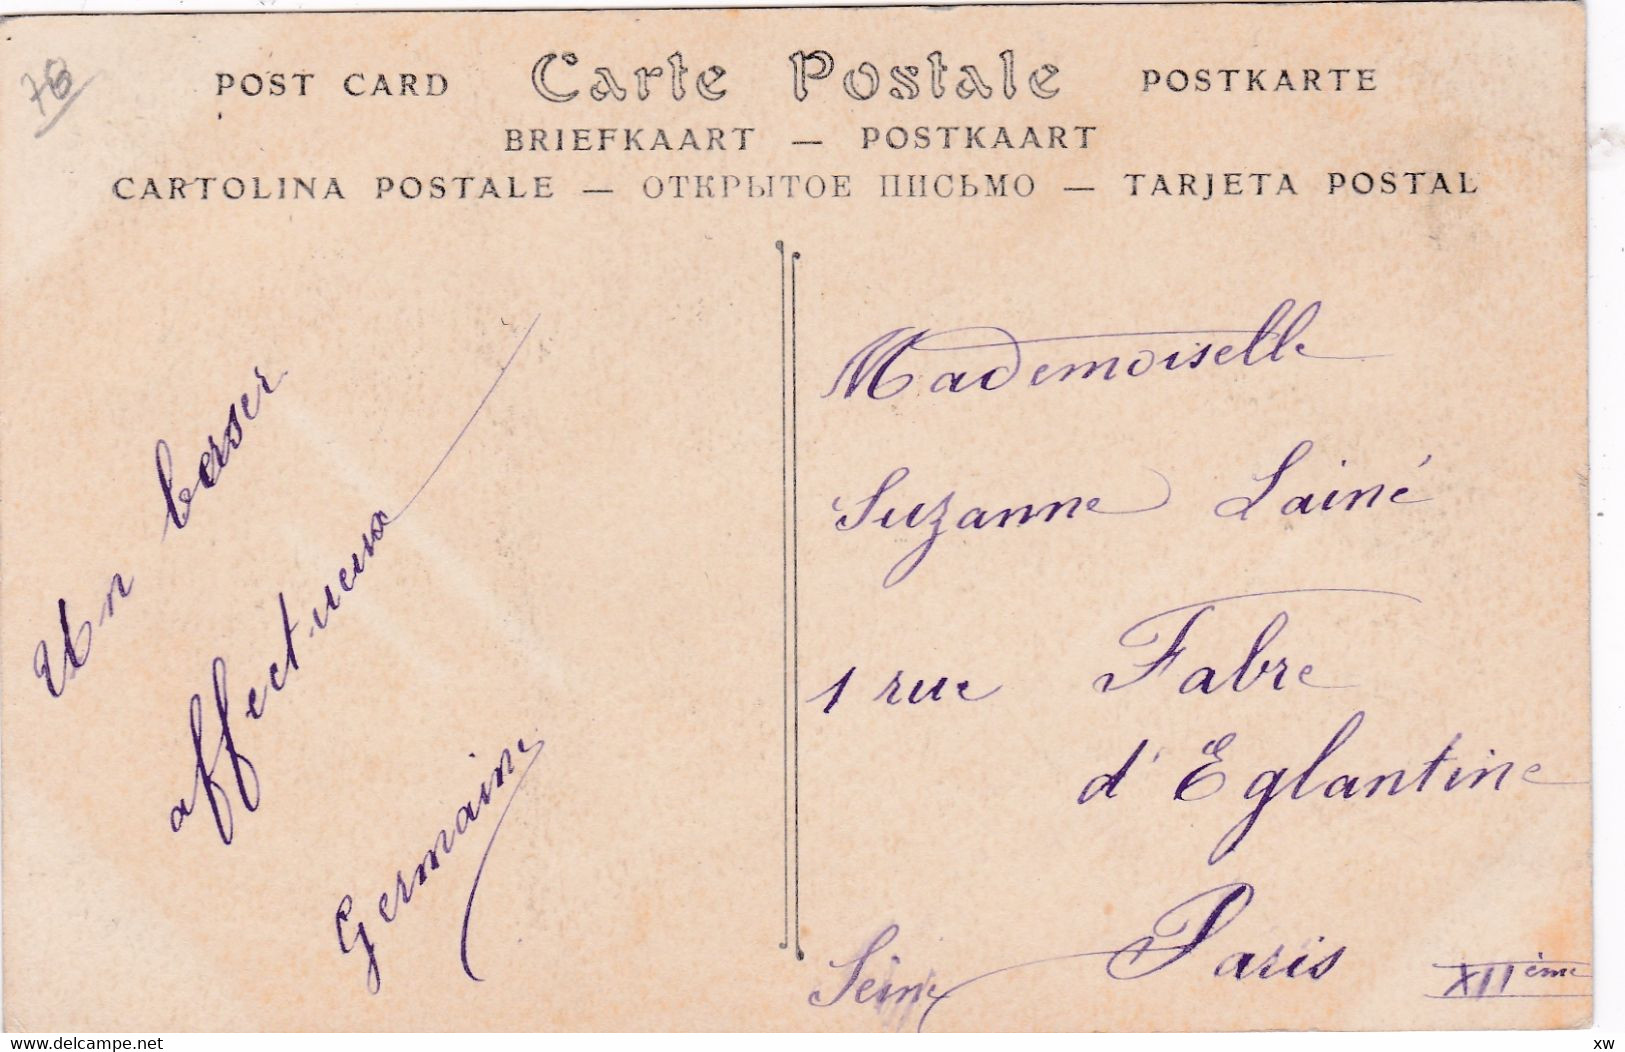 76
POST CARD Carte Postale POSTKARTE
BRIEFKAART — POSTKAART
CARTOLINA POSTALE — ОТКРЫТОЕ ПИСЬМО — TARJETA POSTAL
Un berser
affectueux
Germaine
Mademoiselle
Suzanne Lainé
1 rue Fabre
d'Eglantine
Paris XIIème
Seine
www.delcampe.net
xw